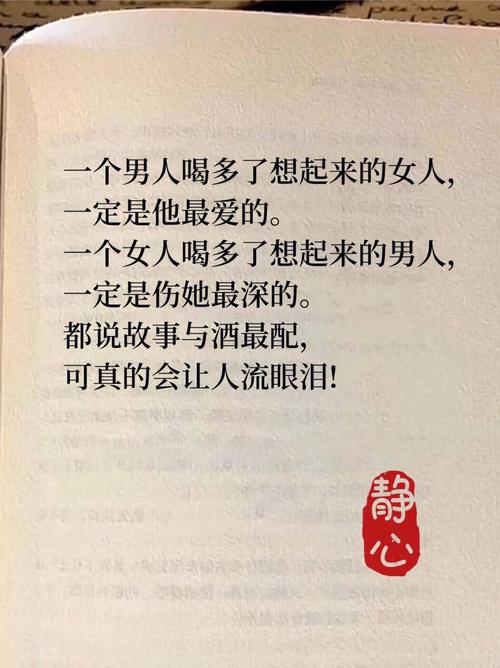 一个男人喝多了想起来的女人,
一定是他最爱的。
一个女人喝多了想起来的男人,
一定是伤她最深的。
都说故事与酒最配,
可真的会让人流眼泪!
静心